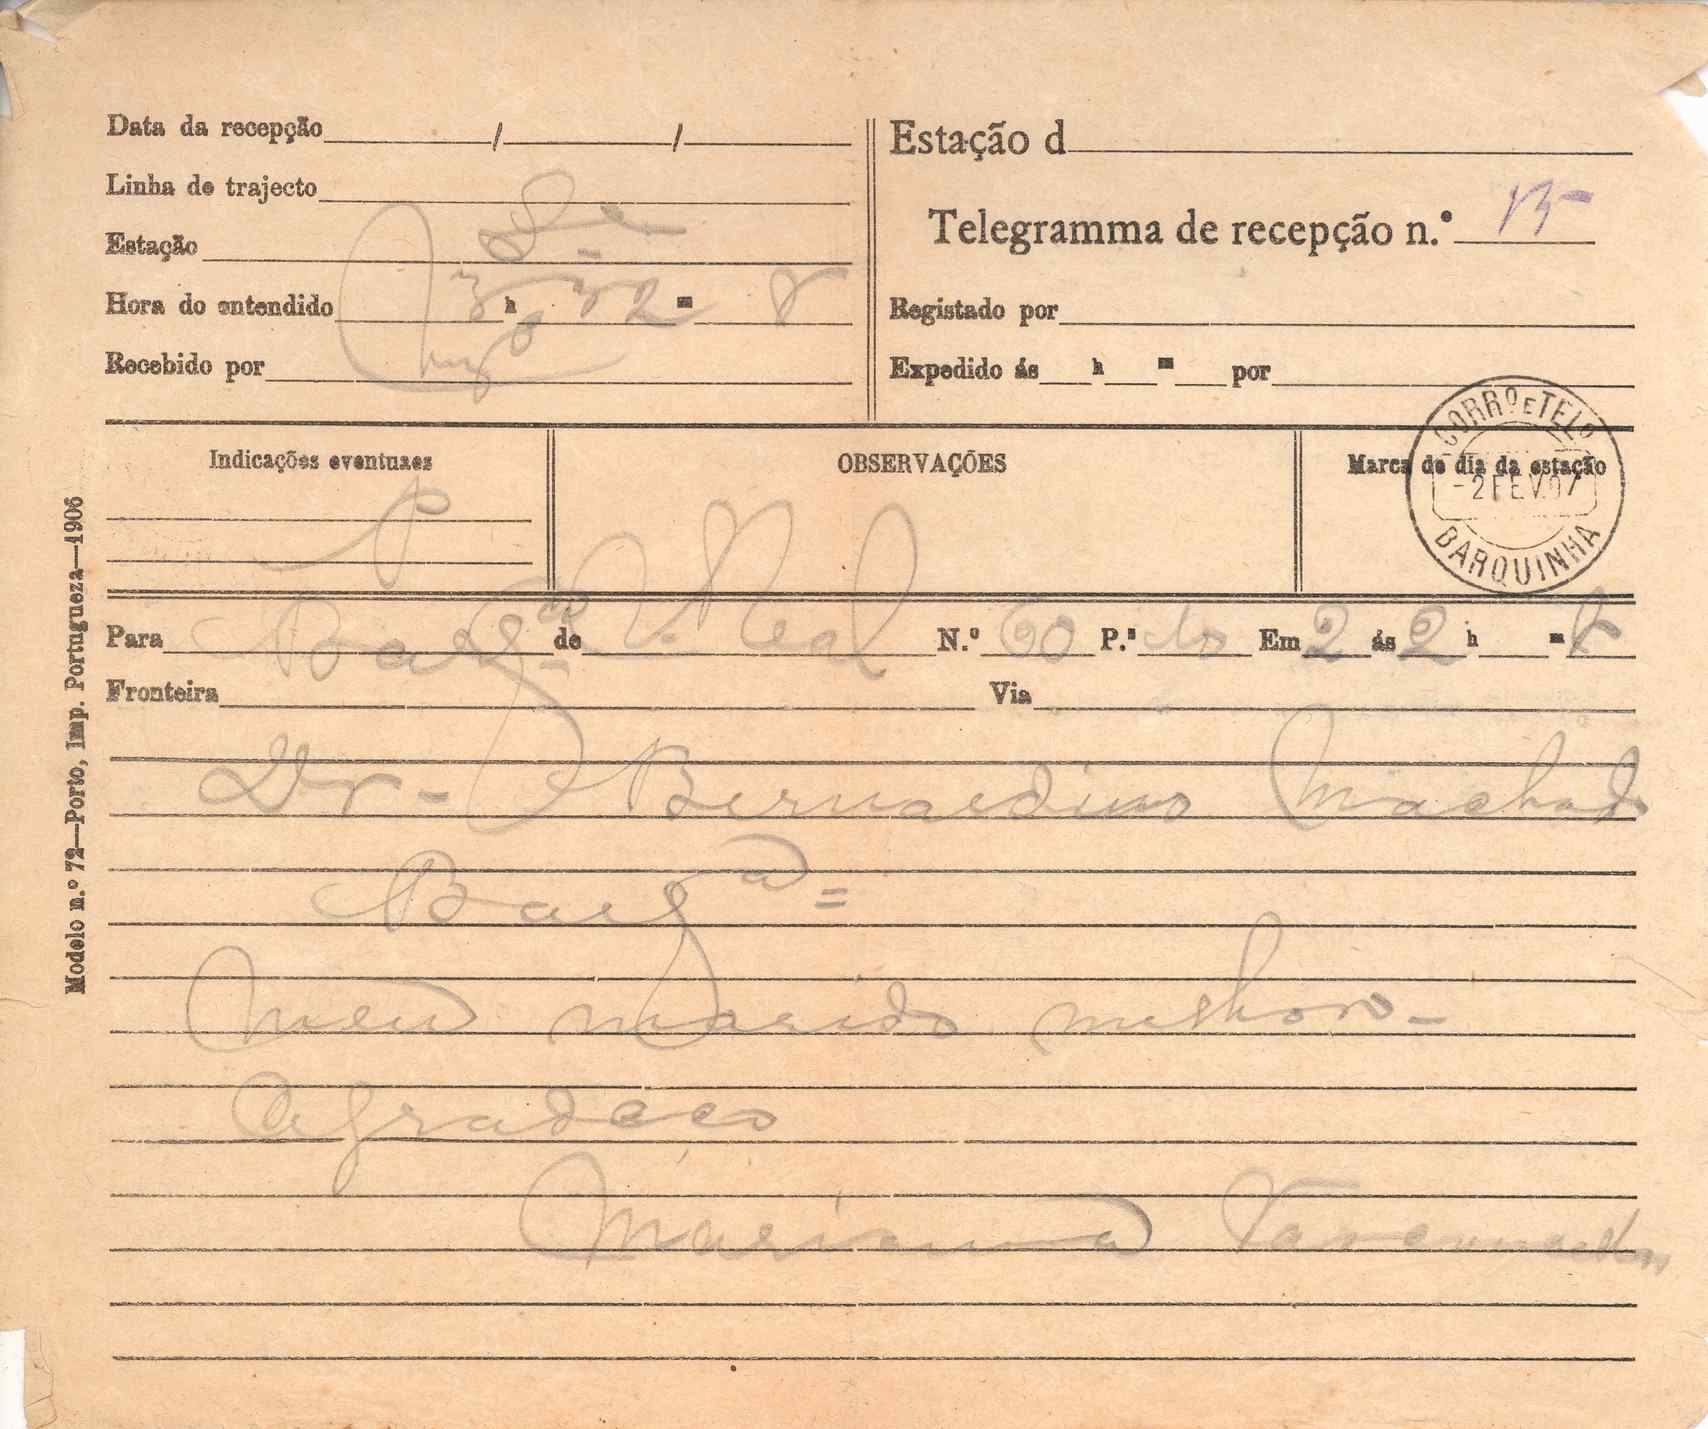 Data da recepção / /
Linha de trajecto
Estação
Hora do entendido h m
Recebido por
Estação d
Telegramma de recepção n.º 15
Registado por
Expedido ás h m por
Indicações eventuaes
P
OBSERVAÇÕES
Marca do dia da estação
CORRº E TELº
-2 FEV. 07
BARQUINHA
Para Barqª de V. Real N.º 60 P.ª 10 Em 2 ás 2 h m t
Fronteira Via
Dr - Bernardino Machado
Barqª =
Meu marido melhor -
Agradeço
Marianna
Modelo n.º 72—Porto, Imp. Portugueza—1906